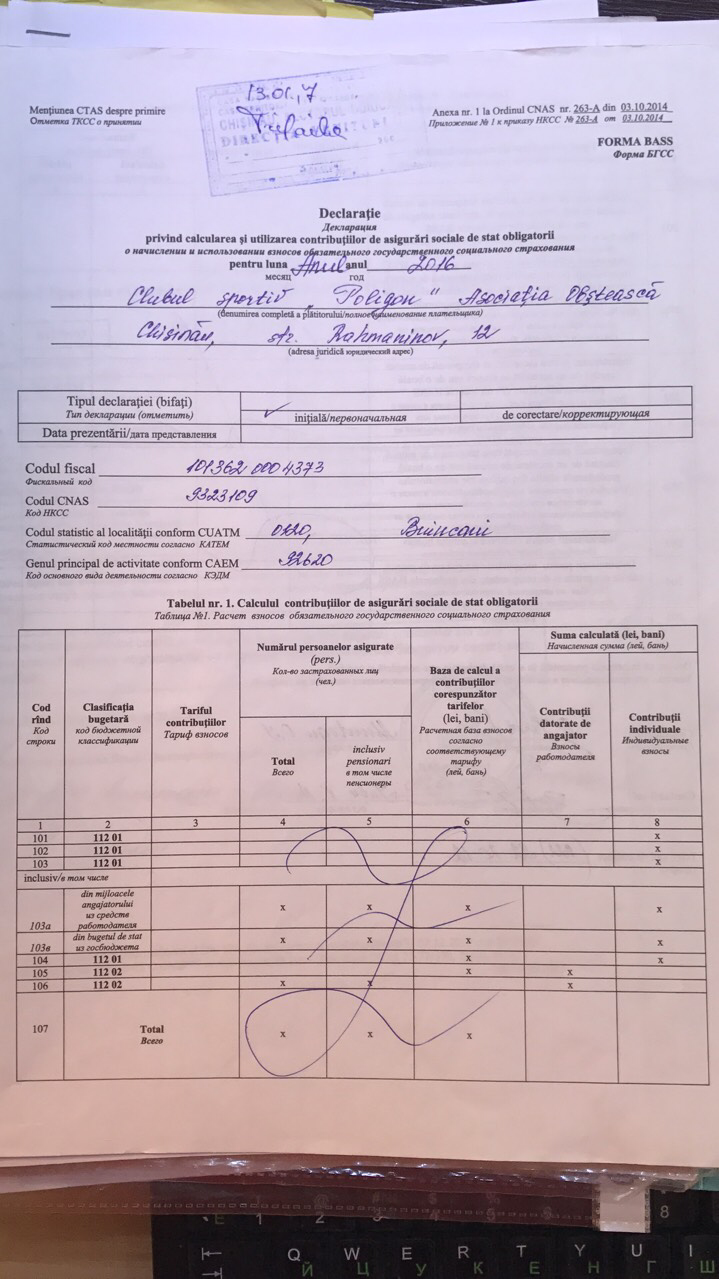 13.01.17
Mențiunea CTAS despre primire
Отметка ТКСС о принятии
Anexa nr. 1 la Ordinul CNAS nr. 263-A din 03.10.2014
Приложение № 1 к приказу НКСС № 263-A от 03.10.2014
FORMA BASS
Форма БГСС
Declarație
Декларация
privind calcularea și utilizarea contribuțiilor de asigurări sociale de stat obligatorii
о начислении и использовании взносов обязательного государственного социального страхования
pentru luna Anul anul 2016
месяц год
Clubul sportiv „Poligon" Asociația Obștească
(denumirea completă a plătitorului/полное наименование плательщика)
Chișinău, str. Rahmaninov, 12
(adresa juridică юридический адрес)
Tipul declarației (bifați)
Тип декларации (отметить)
✓ inițială/первоначальная
de corectare/корректирующая
Data prezentării/дата представления
Codul fiscal 1013620004373
Фискальный код
Codul CNAS 9323109
Код НКСС
Codul statistic al localității conform CUATM 0120,
Статистический код местности согласно КАТЕМ
Genul principal de activitate conform CAEM 92620
Код основного вида деятельности согласно КЭДМ
Tabelul nr. 1. Calculul contribuțiilor de asigurări sociale de stat obligatorii
Таблица №1. Расчет взносов обязательного государственного социального страхования
Cod rînd
Код строки
Clasificația bugetară
код бюджетной классификации
Tariful contribuțiilor
Тариф взносов
Numărul persoanelor asigurate
(pers.)
Кол-во застрахованных лиц
(чел.)
Total
Всего
inclusiv pensionari
в том числе пенсионеры
Baza de calcul a contribuțiilor corespunzător tarifelor
(lei, bani)
Расчетная база взносов согласно соответствующему тарифу
(лей, бань)
Suma calculată (lei, bani)
Начисленная сумма (лей, бань)
Contribuții datorate de angajator
Взносы работодателя
Contribuții individuale
Индивидуальные взносы
1 2 3 4 5 6 7 8
101 112 01 x
102 112 01 x
103 112 01 x
inclusiv/в том числе
103а din mijloacele angajatorului из средств работодателя x x x x
103в din bugetul de stat из госбюджета x x x x
104 112 01 x x
105 112 02 x x
106 112 02 x x x
107 Total Всего x x x
8
Q W E R T Y U I
Й Ц У К Е Н Г Ш